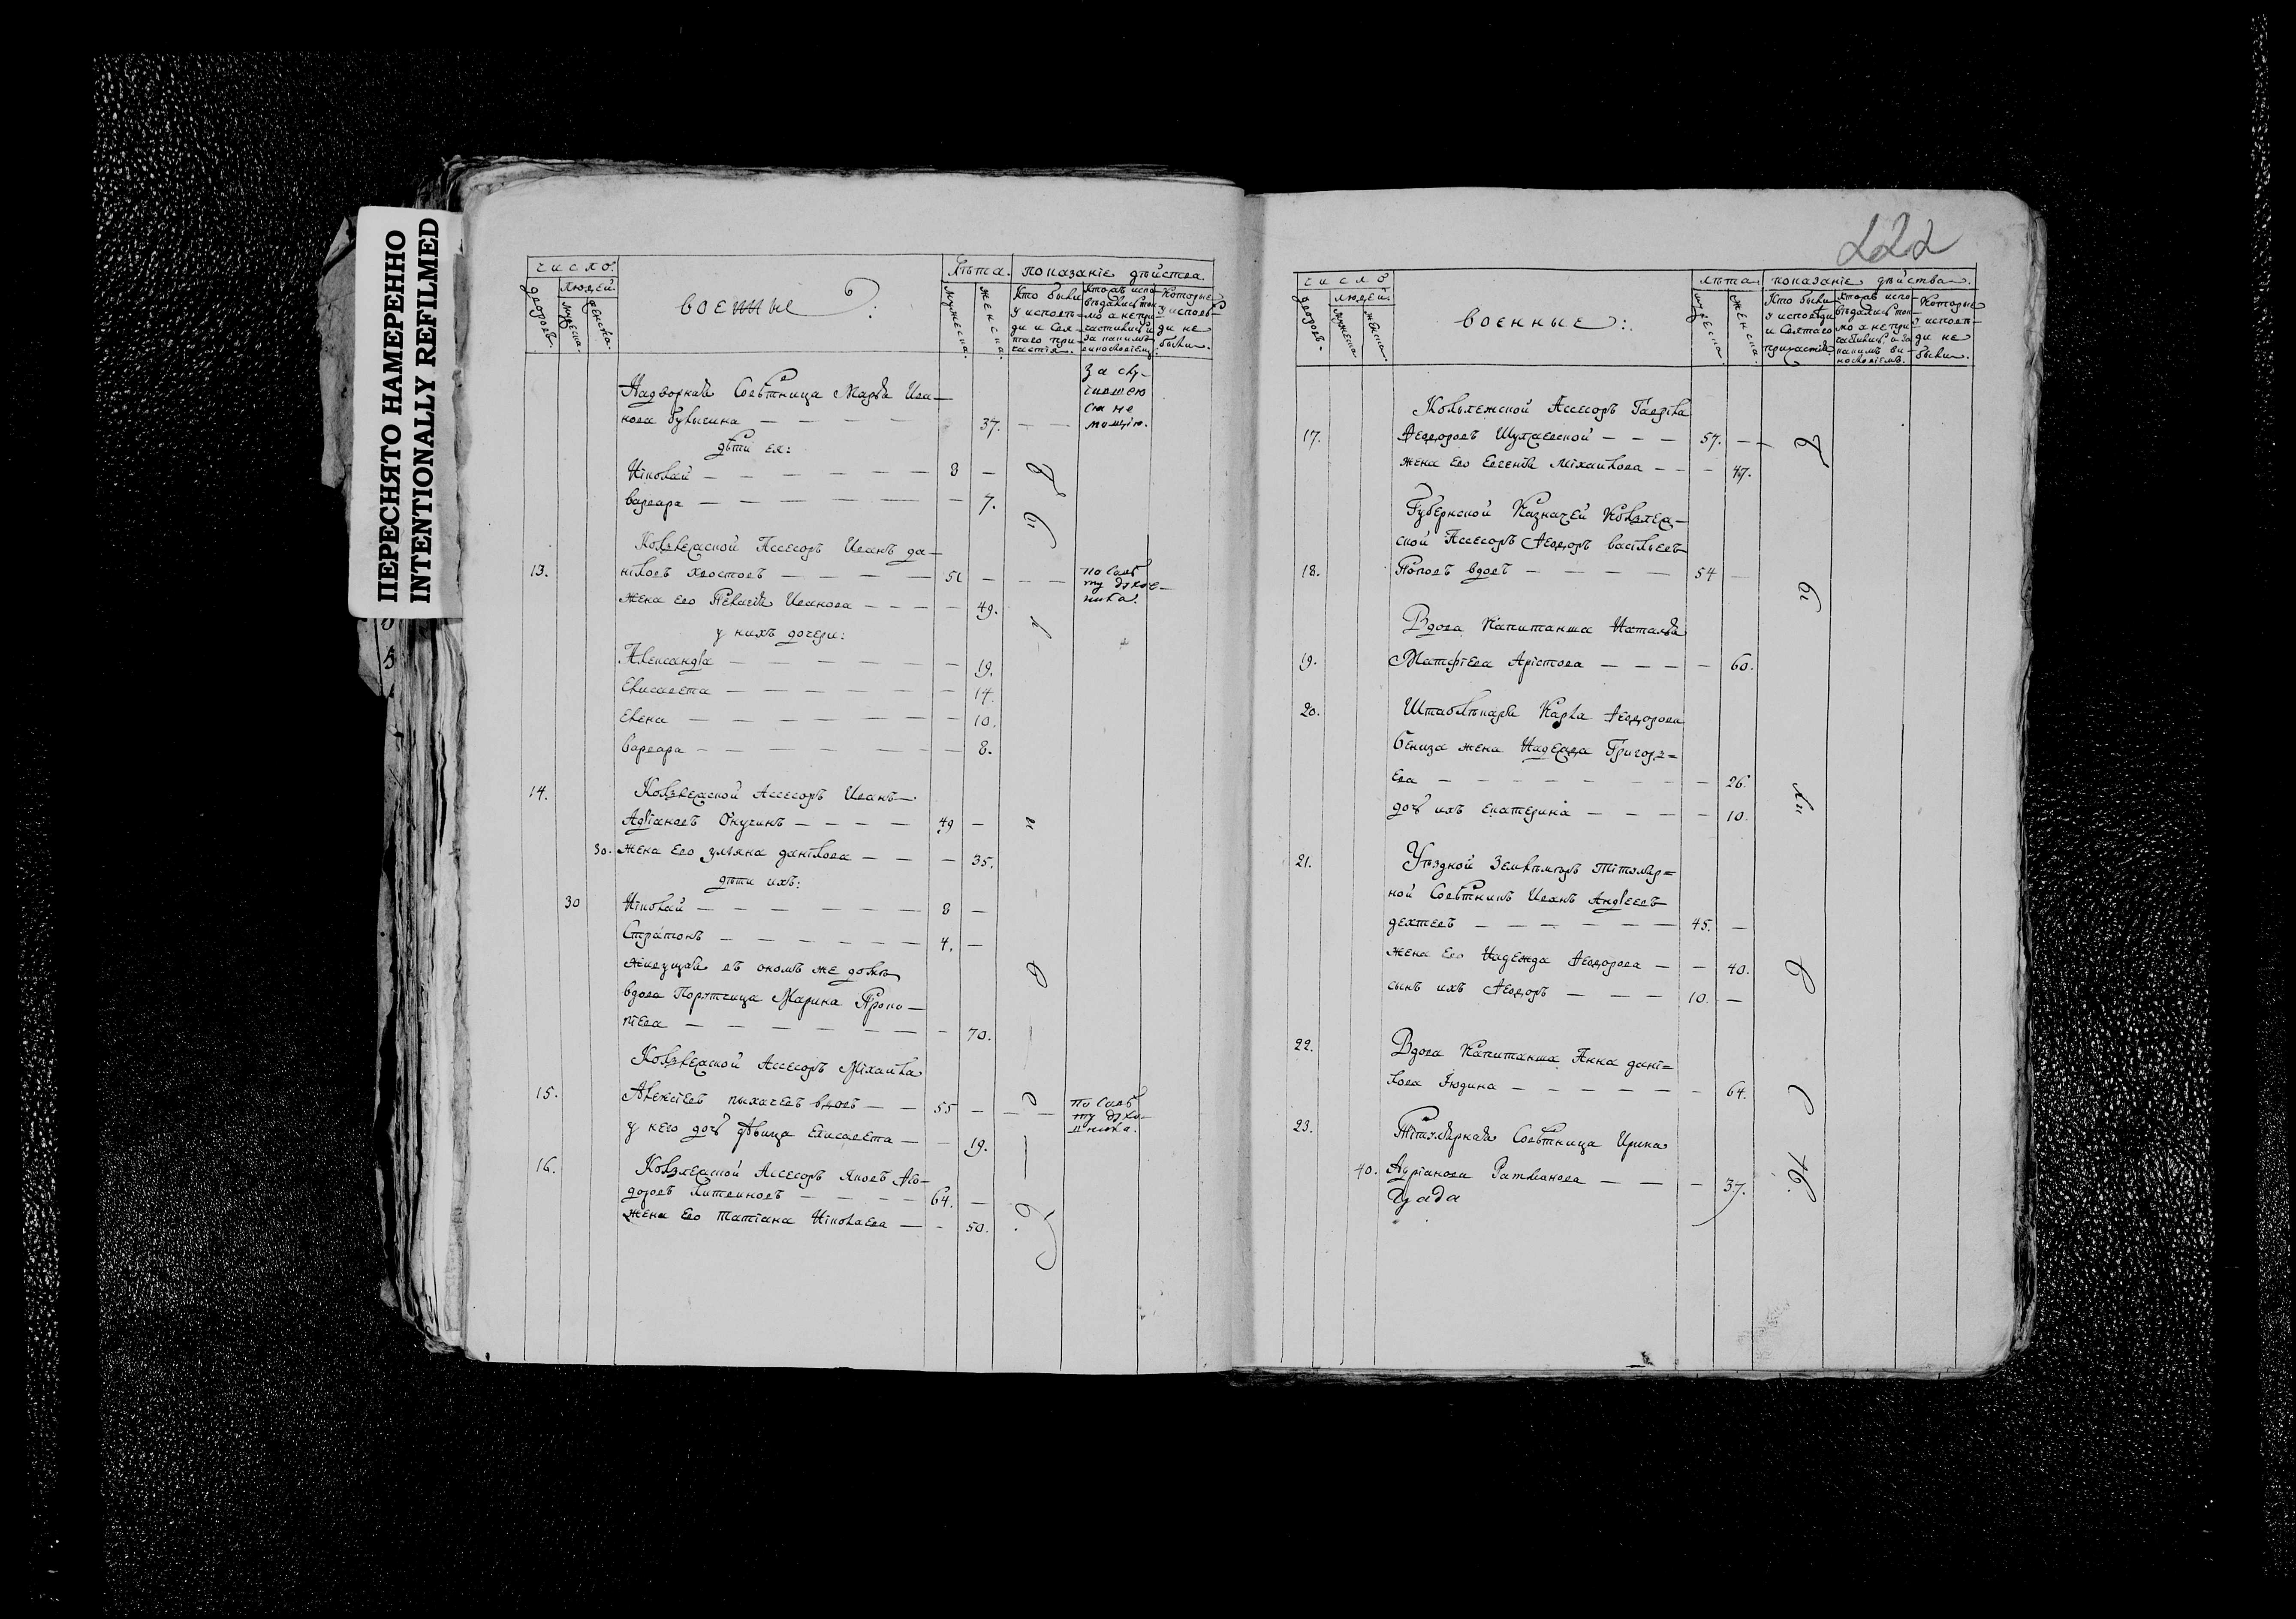 ПЕРЕСНЯТО НАМЕРЕННО
INTENTIONALLY REFILMED
число.
людей.
дворовъ.
мужеска.
женска.
военные:
лѣта.
мужеска.
женска.
показаніе дѣйства.
Кто были
у исповѣ-
ди и свя-
таго при-
частія.
Кто жъ испо-
вѣдались ток-
мо а непри-
частились и
за какимъ
винословіемъ
Которые
у исповѣ-
ди не
были.
Надворная Совѣтница Марья Ива-
нова 37.
за слу-
чившею
ся не
мощію.
дѣти ея:
Ніколай 8
варвара 7.
Коллежской Ассесоръ Иванъ да-
13. ніловъ хвостовъ 51
по совѣ
ту духов-
ника.
жена его Пелагія Иванова 49.
у нихъ дочери:
Александра 19.
Елисавета 14.
Елена 10.
варвара 8.
14. Коллежской Ассесоръ Иванъ
Адріановъ Онучинъ 49
30. жена его уліяна данілова 35.
дѣти ихъ:
30 Ніколай 8
Стратонъ 4.
живущая въ ономъ же домѣ
вдова Порутчица Марина Проко-
піева 70.
Коллежской Ассесоръ Міхаила
15. Алексіевъ пыхачевъ вдовъ 55
по совѣ
ту духо-
вника.
у него дочь дѣвица Елисавета 19.
16. Коллежской Ассесоръ Яковъ Ѳео-
доровъ Литвиновъ 64.
жена его татіана Ніколаева 50.
222
число
людей.
дворовъ.
мужеска.
женска.
военные:
лѣта.
мужеска.
женска.
показаніе дѣйства.
Кто были
у исповѣди
и Святаго
причастія.
Кто жъ испо-
вѣдались ток-
мо а непри-
частились и за
какимъ ви-
нословіемъ.
Которые
у исповѣ-
ди не
были.
Коллежской Ассесоръ Гавріла
17. Ѳеодоровъ 57.
жена его Евгенія Міхаилова 47.
Губернской Казначей Коллеж-
ской Ассесоръ Ѳеодоръ васільевъ
18. Поповъ вдовъ 54
Вдова Капитанша Наталья
19. Матфіева Арістова 60.
20. Штаблѣкаря Карла Ѳеодорова
бениза жена Надежда Григорь-
ева 26.
дочь ихъ екатерина 10.
21. Уѣздной Землемѣръ тітуляр-
ной Совѣтникъ Иванъ Андреевъ
дехтевъ 45.
жена его Надежда Ѳеодорова 40.
сынъ ихъ Ѳеодоръ 10.
22. Вдова Капитанша Анна дані-
лова Юдина 64.
23. Тітулярная Совѣтница Ирина
40. Адріанова Ратманова 37.